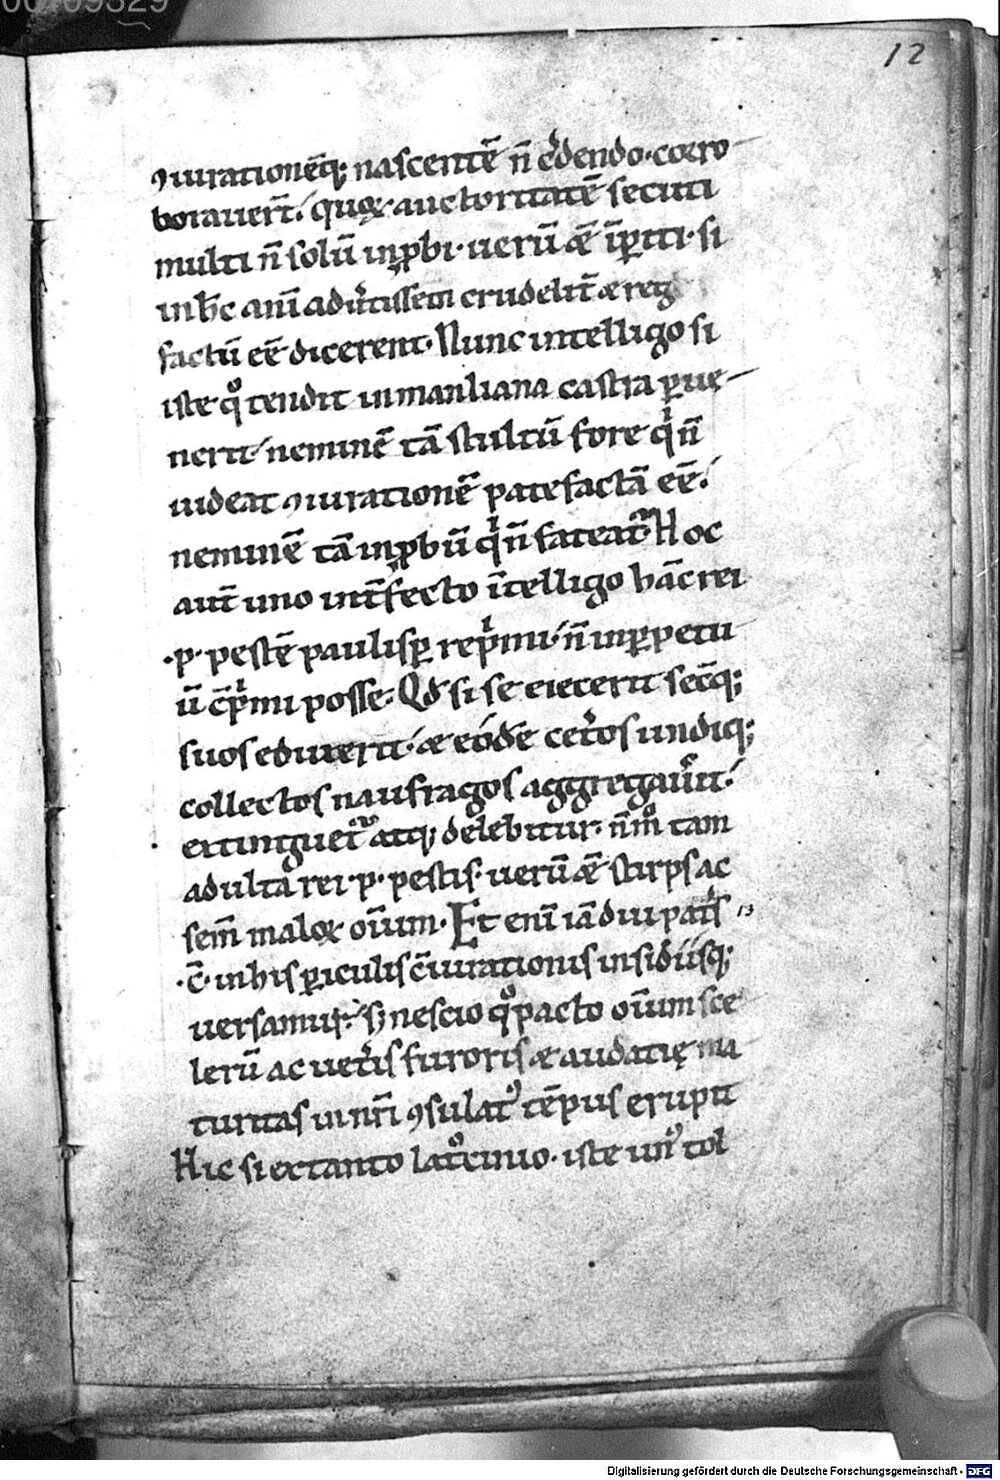 00109329
12
ꝯiurationēq; nascentē n̄ c̍dendo· corro
borauer̄t. quoꝝ auctoritatē secuti
multi n̄ solū inꝓbi· uerū ǣ īꝑiti· si
in h̄c anī aduertissem crudelit̄ & reg
factū eē dicerent· Nunc intelligo si
iste qͦ tendit in manliana castra ꝑue
nerit neminē tā stultū fore qi n̄
uideat ꝯiurationē patefactā eē.
neminē tā inꝓbū qi n̄ fateat̄ Hoc
aut̄ uno int̄fecto ītelligo hāc rei
·p· pestē paulisꝑ rep̍mi n̄ inꝑpetu
ū cōp̍mi posse· Qd̄ si se eiecerit secūq;
suos eduxerit· & eodē cet̍os undiq;
collectos naufragos aggregau̍it.
extinguet᷑ atq; delebitur· n̄ mͦ tam
adulta rei·p· pestis· uerū ǣ stirps ac
sem̄ maloꝝ oīum· Et enī iā diu pat̍s
·c̄· in his ꝑiculis c̄iurationis insidiisq;
uersamur· sꝫ nescio qͦ pacto oīum sce
lerū ac uet̍is furoris & audatię ma
turitas in nr̄i ꝯsulatꝰ tēpus erupit
Hic si ex tanto latͦcinio· iste unꝰ tol
Digitalisierung gefördert durch die Deutsche Forschungsgemeinschaft - DFG